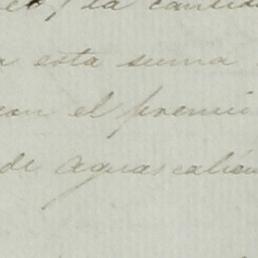 la cantid
esta suma
con el premio
de Aguascalien